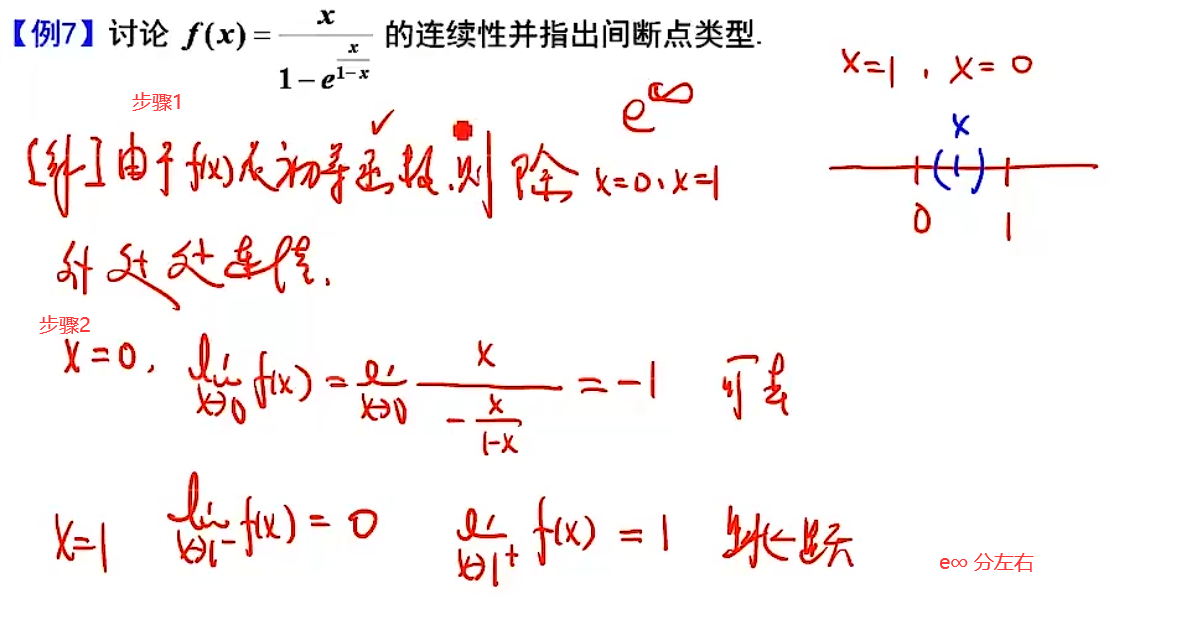 【例7】讨论 f(x) = x / (1 − e^(x/(1−x))) 的连续性并指出间断点类型.
x=1, x=0
步骤1
e^∞
x
[解] 由于 f(x) 为初等函数, 则 除 x=0, x=1
0 1
外 处处连续.
步骤2
x=0, lim x→0 f(x) = lim x→0 x / (−x/(1−x)) = −1 可去
x=1 lim x→1⁻ f(x) = 0 lim x→1⁺ f(x) = 1 跳跃
e∞ 分左右